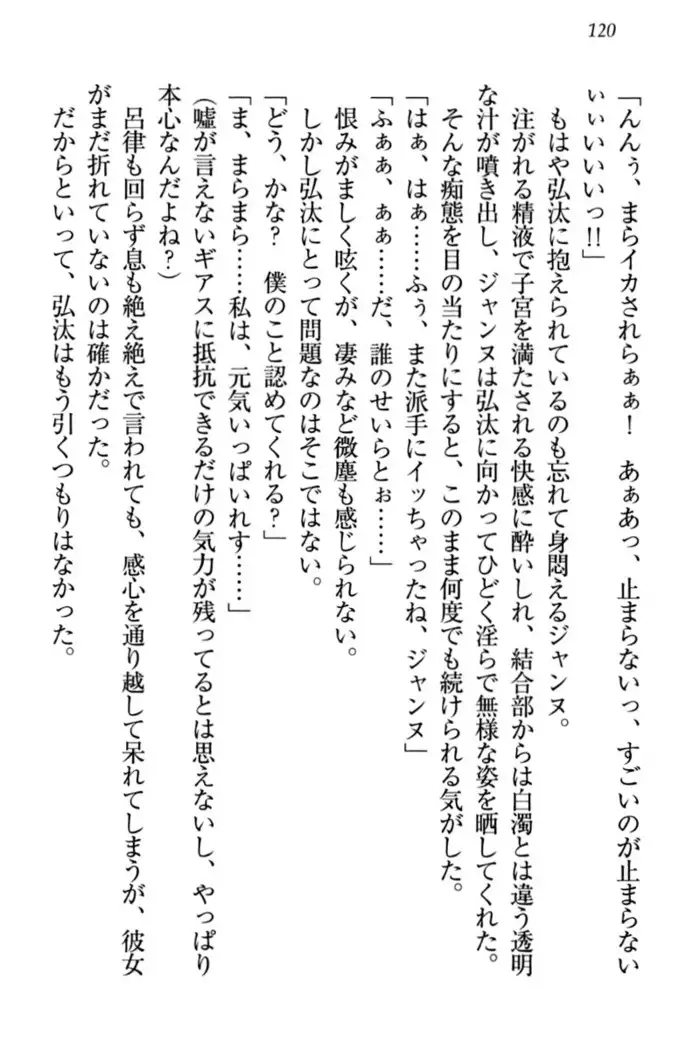 120
「んんぅ、まらイカされらぁぁ！　あぁあっ、止まらないっ、すごいのが止まらない
ぃぃいいいっ!!」
もはや弘汰に抱えられているのも忘れて身悶えるジャンヌ。
注がれる精液で子宮を満たされる快感に酔いしれ、結合部からは白濁とは違う透明
な汁が噴き出し、ジャンヌは弘汰に向かってひどく淫らで無様な姿を晒してくれた。
そんな痴態を目の当たりにすると、このまま何度でも続けられる気がした。
「はぁ、はぁ……ふぅ、また派手にイッちゃったね、ジャンヌ」
「ふぁぁ、ぁぁ……だ、誰のせいらとぉ……」
恨みがましく呟くが、凄みなど微塵も感じられない。
しかし弘汰にとって問題なのはそこではない。
「どう、かな？　僕のこと認めてくれる？」
「ま、まらまら……私は、元気いっぱいれす……」
（嘘が言えないギアスに抵抗できるだけの気力が残ってるとは思えないし、やっぱり
本心なんだよね？）
呂律も回らず息も絶え絶えで言われても、感心を通り越して呆れてしまうが、彼女
がまだ折れていないのは確かだった。
だからといって、弘汰はもう引くつもりはなかった。